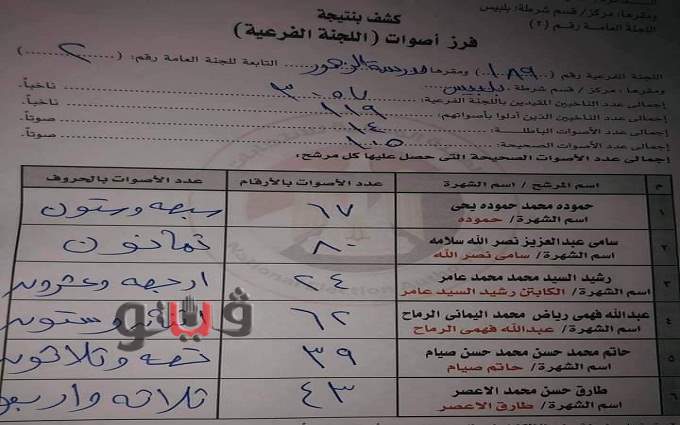 ومقرها: مركز/ قسم شرطة: بلبيس
اللجنة العامة رقم: (٢)
كشف بنتيجة
فرز أصوات (اللجنة الفرعية)
اللجنة الفرعية رقم (١٨٩) ومقرها مدرسة الزهور التابعة للجنة العامة رقم: (٢)
ومقرها: مركز/ قسم شرطة: بلبيس
إجمالى عدد الناخبين المقيدين باللجنة الفرعية: ٣٠٥٧ ناخباً.
إجمالى عدد الناخبين الذين أدلوا بأصواتهم: ١١٩ ناخباً.
إجمالى عدد الأصوات الباطلة: ١٤ صوتاً.
إجمالى عدد الأصوات الصحيحة: ١٠٥ صوتاً.
إجمالى عدد الأصوات الصحيحة التى حصل عليها كل مرشح:
م اسم المرشح / اسم الشهرة عدد الأصوات بالأرقام عدد الأصوات بالحروف
١ حموده محمد حموده يحى ٦٧ سبعه وستون
اسم الشهرة/ حموده
٢ سامى عبدالعزيز نصر الله سلامه ٨٠ ثمانون
اسم الشهرة/ سامى نصر الله
٣ رشيد السيد محمد محمد عامر ٢٤ اربعه وعشرون
اسم الشهرة/ الكابتن رشيد السيد عامر
٤ عبدالله فهمى رياض محمد اليمانى الرماح ٦٢ وستون
اسم الشهرة/ عبدالله فهمى الرماح
ڤيتو
٥ حاتم محمد حسن محمد حسن صيام ٣٩ تسعه وثلاثون
اسم الشهرة/ حاتم صيام
٦ طارق حسن محمد الاعصر ٤٣ ثلاثه واربعو
اسم الشهرة/ طارق الاعصر